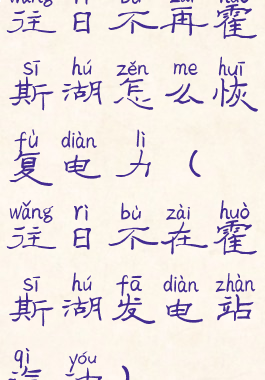 wǎng rì bù zài huò
往日不再霍
sī hú zěn me huī
斯湖怎么恢
fù diàn lì
复电力（
wǎng rì bù zài huò
往日不在霍
sī hú fā diàn zhàn
斯湖发电站
qì yóu
汽油）